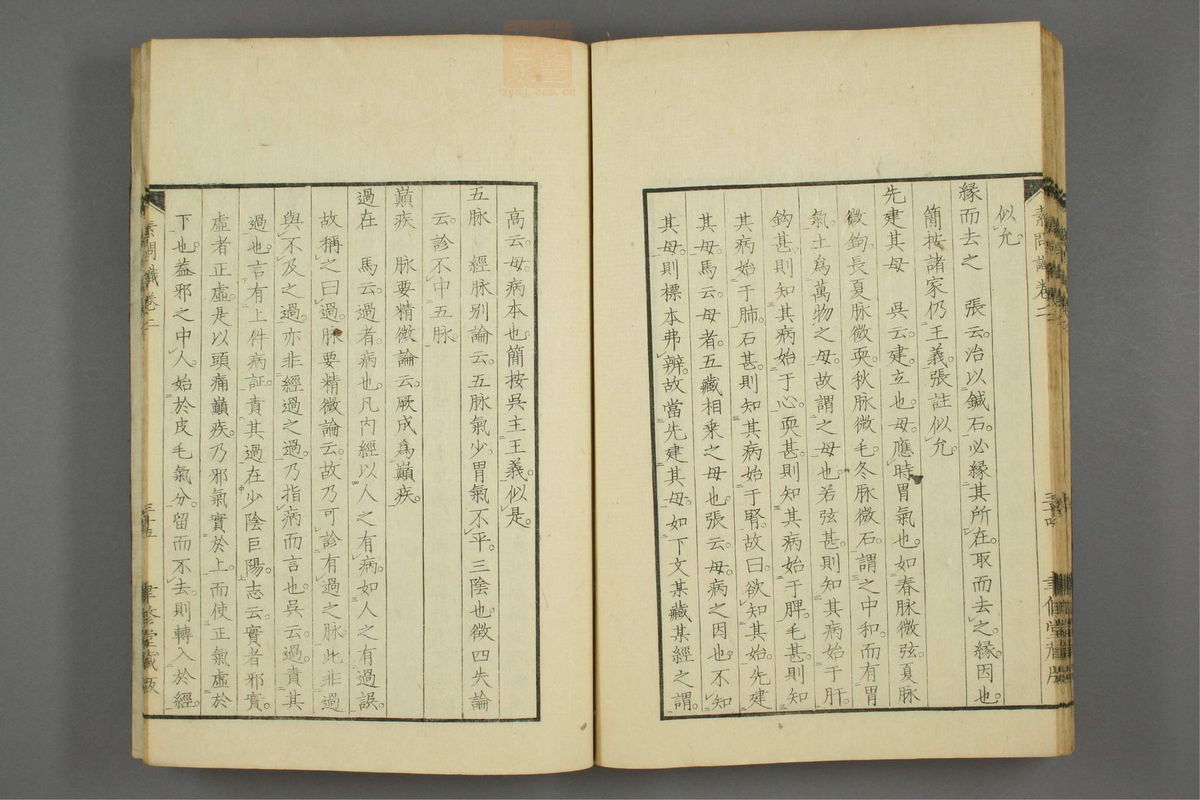 素問識卷二
三十四
聿修堂藏版
似允。
緣而去之　張云。冶以鍼石。必緣其所在。取而去之。緣。因也。
簡按諸家仍王義。張註似允。
先建其母　吳云。建。立也。母。應時胃氣也。如春脉微弦。夏脉
微鉤。長夏脉微耎。秋脉微毛。冬脉微石。謂之中和。而有胃
氣。土爲萬物之母。故謂之母也。若弦甚。則知其病始于肝。
鈎甚。則知其病始于心。耎甚。則知其病始于脾。毛甚。則知
其病始于肺。石甚。則知其病始于腎。故曰欲知其始先建
其母。馬云。母者。五藏相乗之母也。張云。母。病之因也。不知
其母。則標本弗辨。故當先建其母。如下文某藏某經之謂。
高云。母。病本也。簡按吳主王義。似是。
五脉　經脉别論云。五脉氣少。胃氣不平。三陰也。徵四失論
云。診不中五脉
巔疾　脉要精微論云。厥成爲巔疾。
過在　馬云。過者。病也。凡内經以人之有病。如人之有過誤。
故稱之曰過。脉要精微論云。故乃可診有過之脉。此非過
與不及之過。亦非經過之過。乃指病而言也。吳云。過。責其
過也。言有上件病証。責其過在少陰巨陽。志云。實者邪實。
虛者正虛。是以頭痛巔疾。乃邪氣實於上。而使正氣虛於
下也。蓋邪之中人。始於皮毛氣分。留而不去。則轉入於經。
素問識卷二
三十五
聿修堂藏版